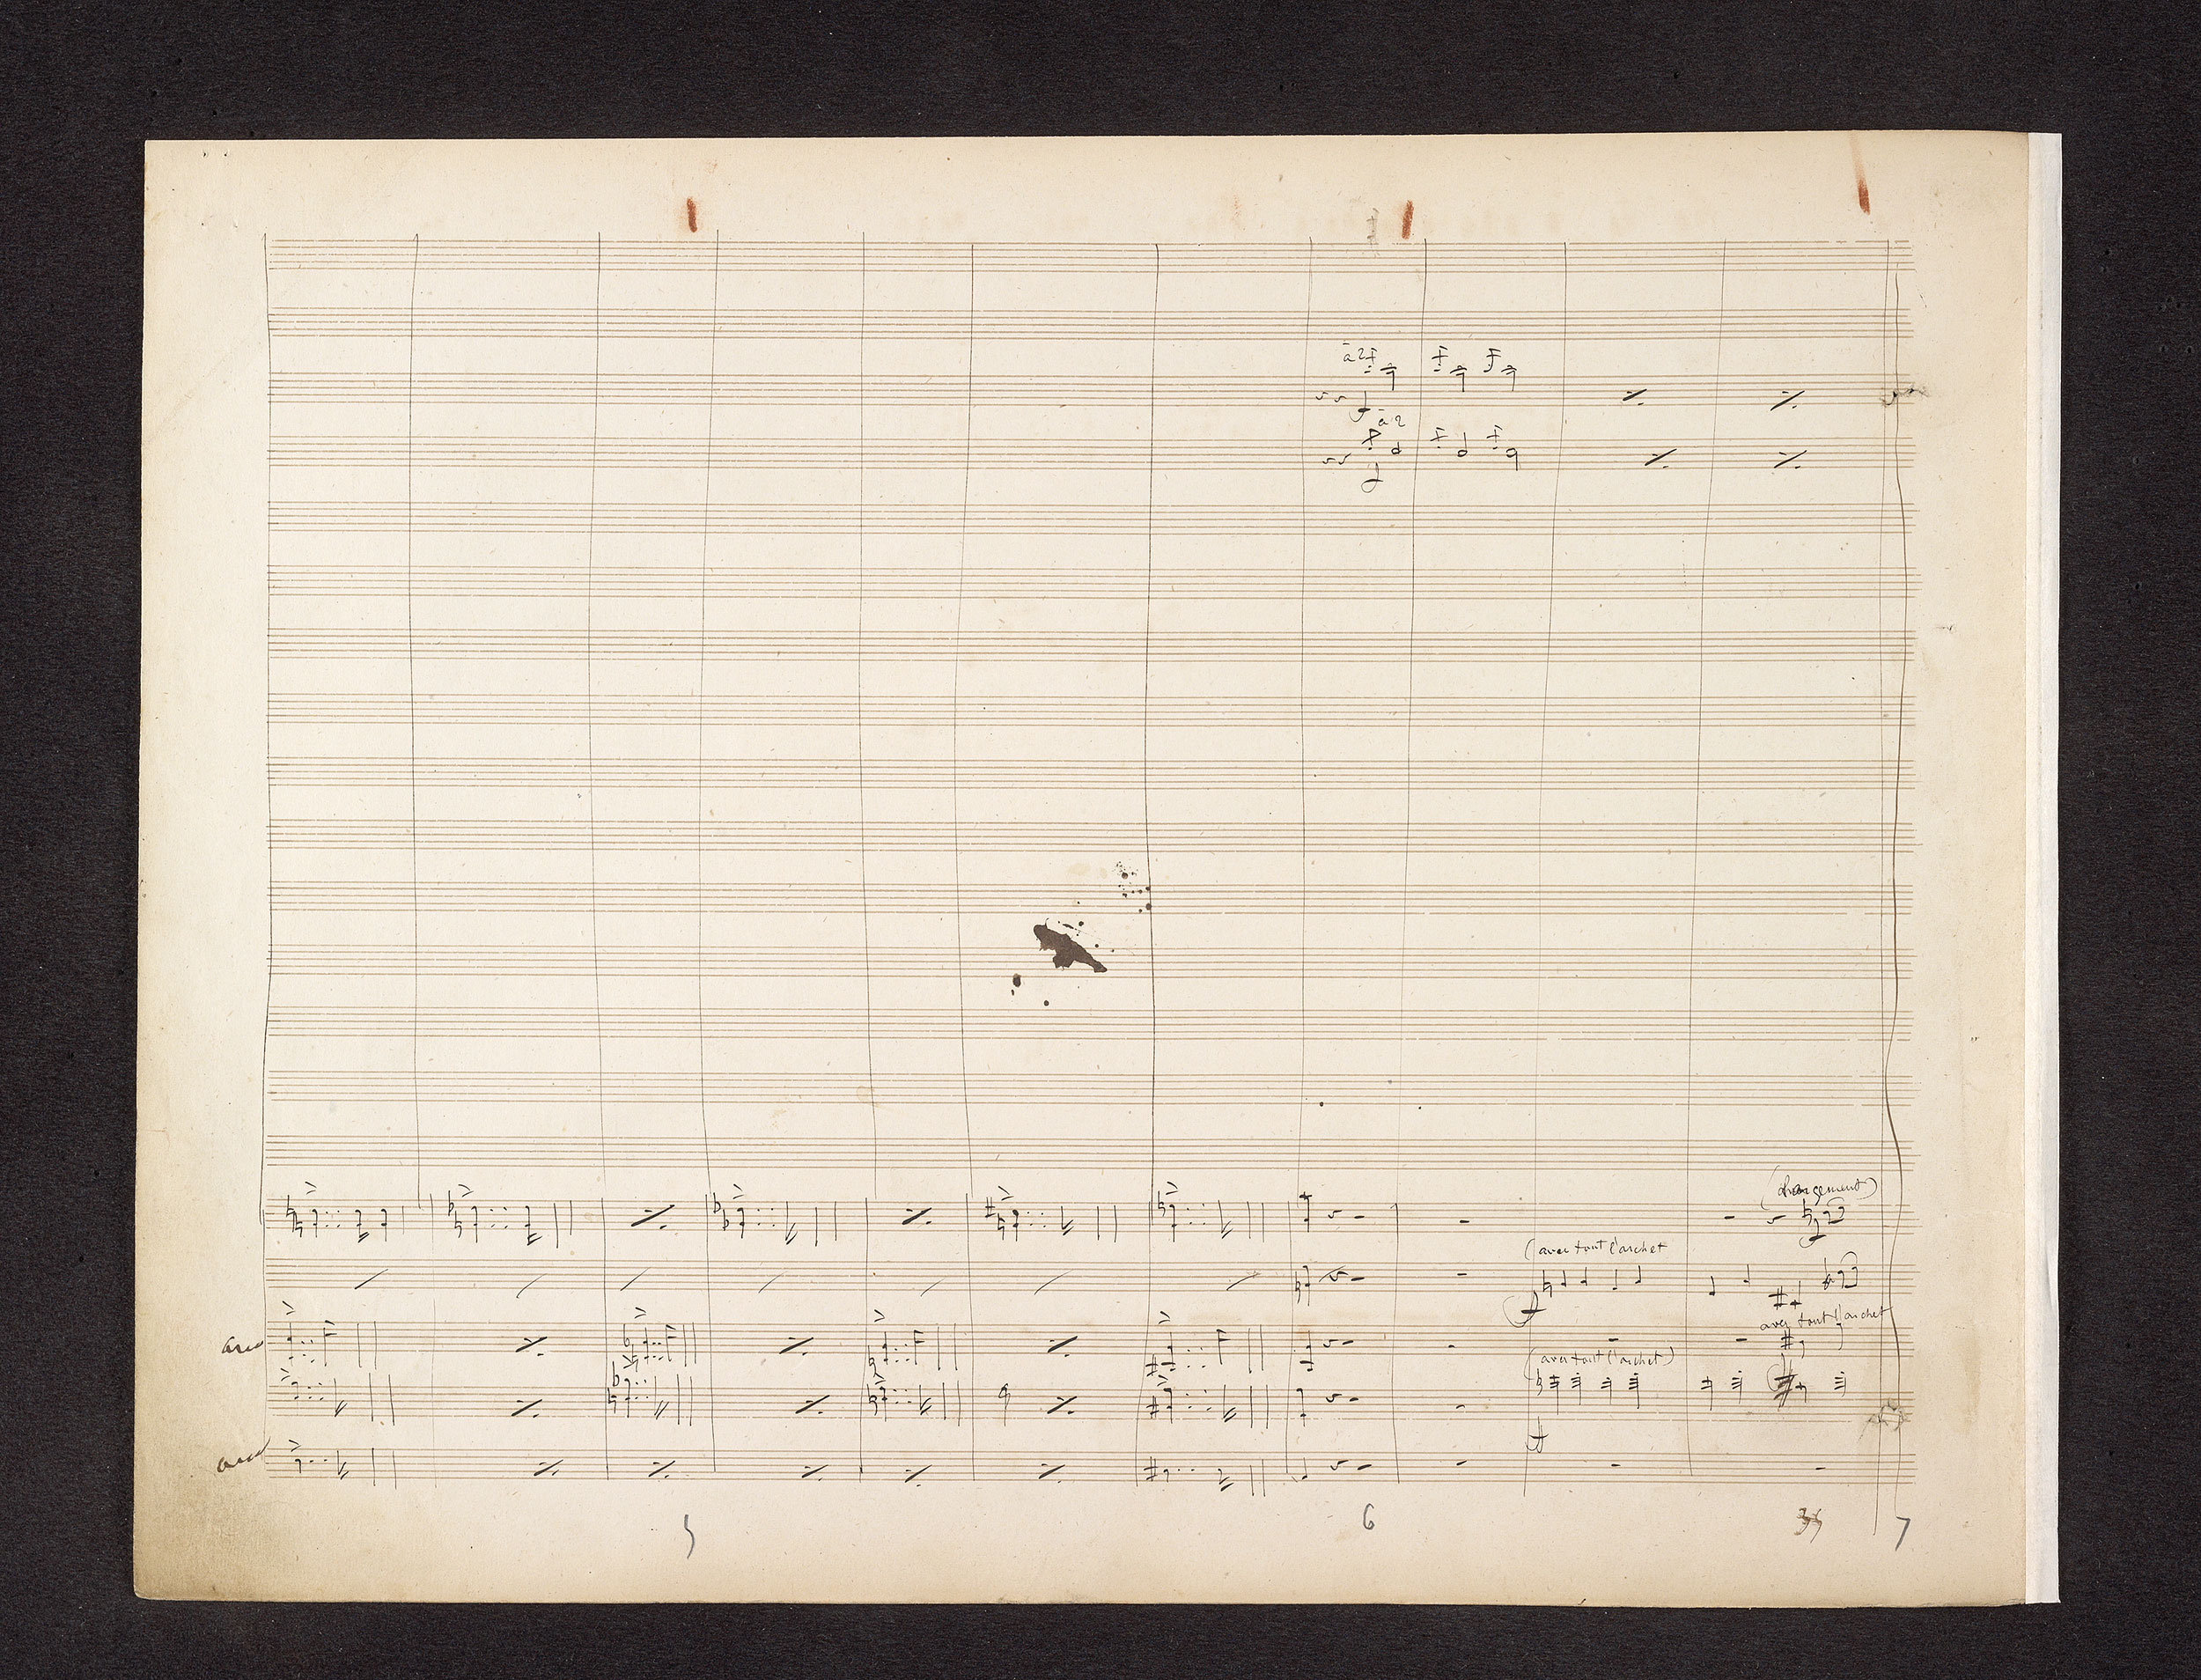 à 2
à 2
(changement)
(avec tout l'archet
avec tout l'archet
arco
(avec tout l'archet)
arco
5
6
7